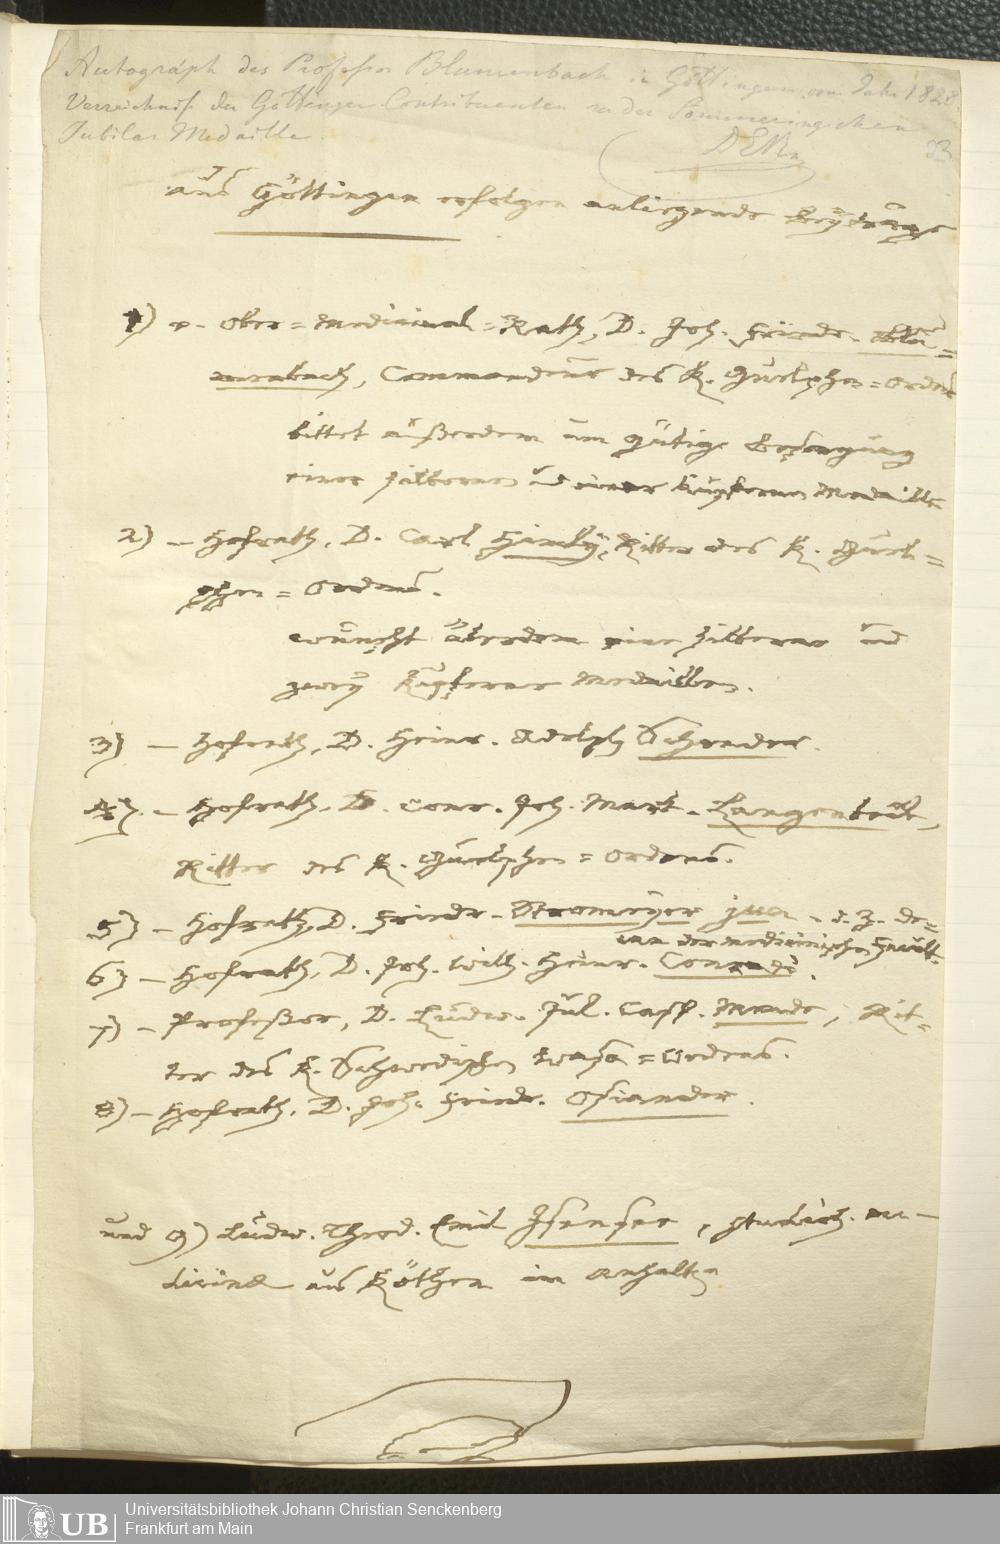 Autograph des Professor Blumenbach in Göttingen vom Jahr 1828.
Verzeichniß der Göttinger Contribuenten zu der Sömmeringschen
Jubilar Medaille.
33
aus Göttingen erfolgen anliegende Beyträge
1) v. Ober=Medicinal=Rath, D. Joh. Friedr. Blu=
menbach, Commandeur des K. Guelphen=Ordens
bittet außerdem um gütige Besorgung
einer silbernen und einer kupfernen Medaille
2) — Hofrath, D. Carl Himly, Ritter des K. Guel=
phen=Ordens.
wünscht außerdem eine silberne und
zwey kupferne Medaillen.
3) — Hofrath, D. Heinr. Adolph Schrader.
4) — Hofrath, D. Conr. Joh. Mart. Langenbeck,
Ritter des K. Guelphen=Ordens.
5) — Hofrath, D. Friedr. Stromeyer jun. d. Z. De=
can der medicinischen Facult.
6) — Hofrath, D. Joh. Wilh. Heinr. Conradi.
7) — Professor, D. Ludw. Jul. Casp. Mende, Rit=
ter des K. Schwedischen Wasa=Ordens.
8) — Hofrath, D. Joh. Friedr. Osiander.
und 9) Ludw. Theod. Emil Isensee, studios. me—
dicinae aus Köthen im Anhaltn
UB
Universitätsbibliothek Johann Christian Senckenberg
Frankfurt am Main